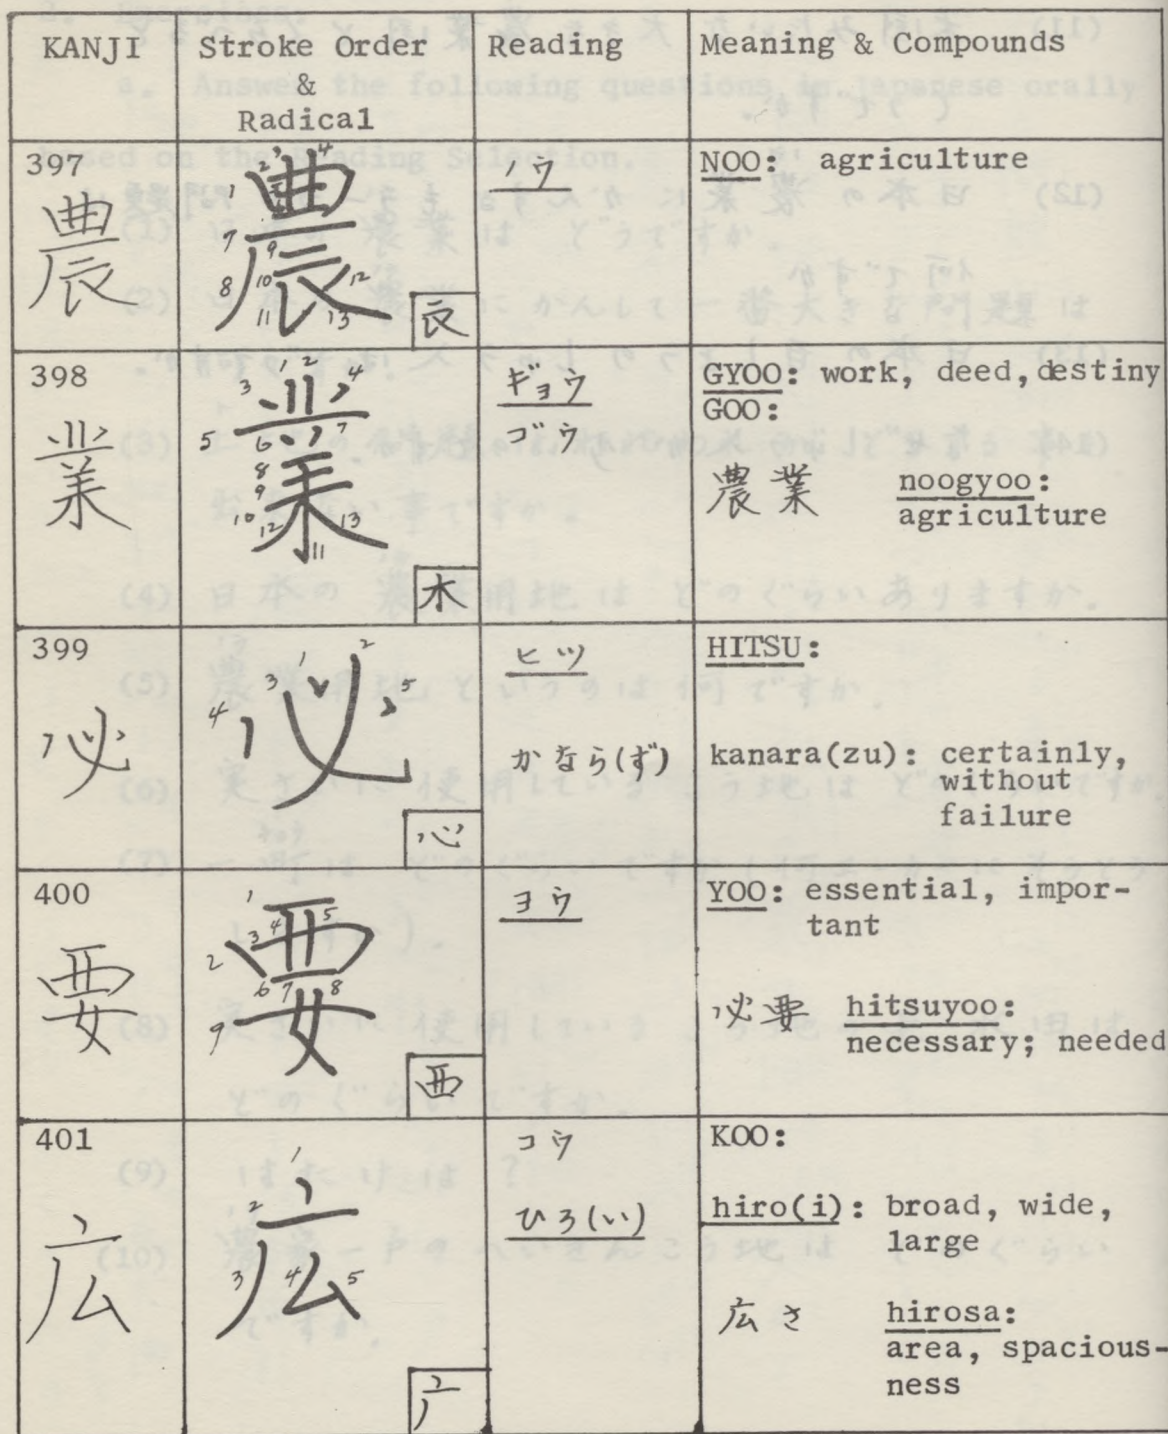 KANJI Stroke Order & Radical Reading Meaning & Compounds
397
農
辰
ノウ
NOO: agriculture
398
業
木
ギョウ
ゴウ
GYOO: work, deed, destiny
GOO:
農業 noogyoo:
agriculture
399
必
心
ヒツ
かなら(ず)
HITSU:
kanara(zu): certainly,
without
failure
400
要
西
ヨウ
YOO: essential, impor-
tant
必要 hitsuyoo:
necessary; needed
401
広
广
コウ
ひろ(い)
KOO:
hiro(i): broad, wide,
large
広さ hirosa:
area, spacious-
ness